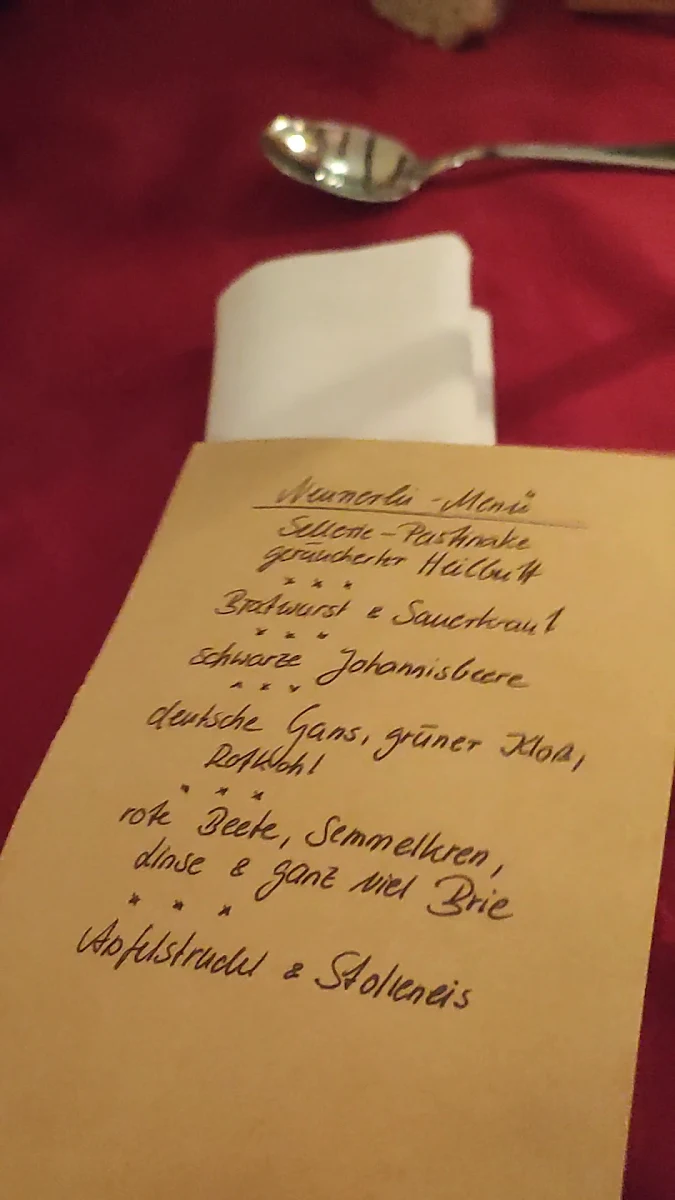 Neunerlei-Menü
Sellerie-Pastinake
geräucherter Heilbutt
* * *
Bratwurst & Sauerkraut
* * *
schwarze Johannisbeere
* * *
deutsche Gans, grüner Kloß,
Rotkohl
* * *
rote Beete, Semmelkren,
& ganz viel Brie
* * *
Apfelstrudel & Stolleneis